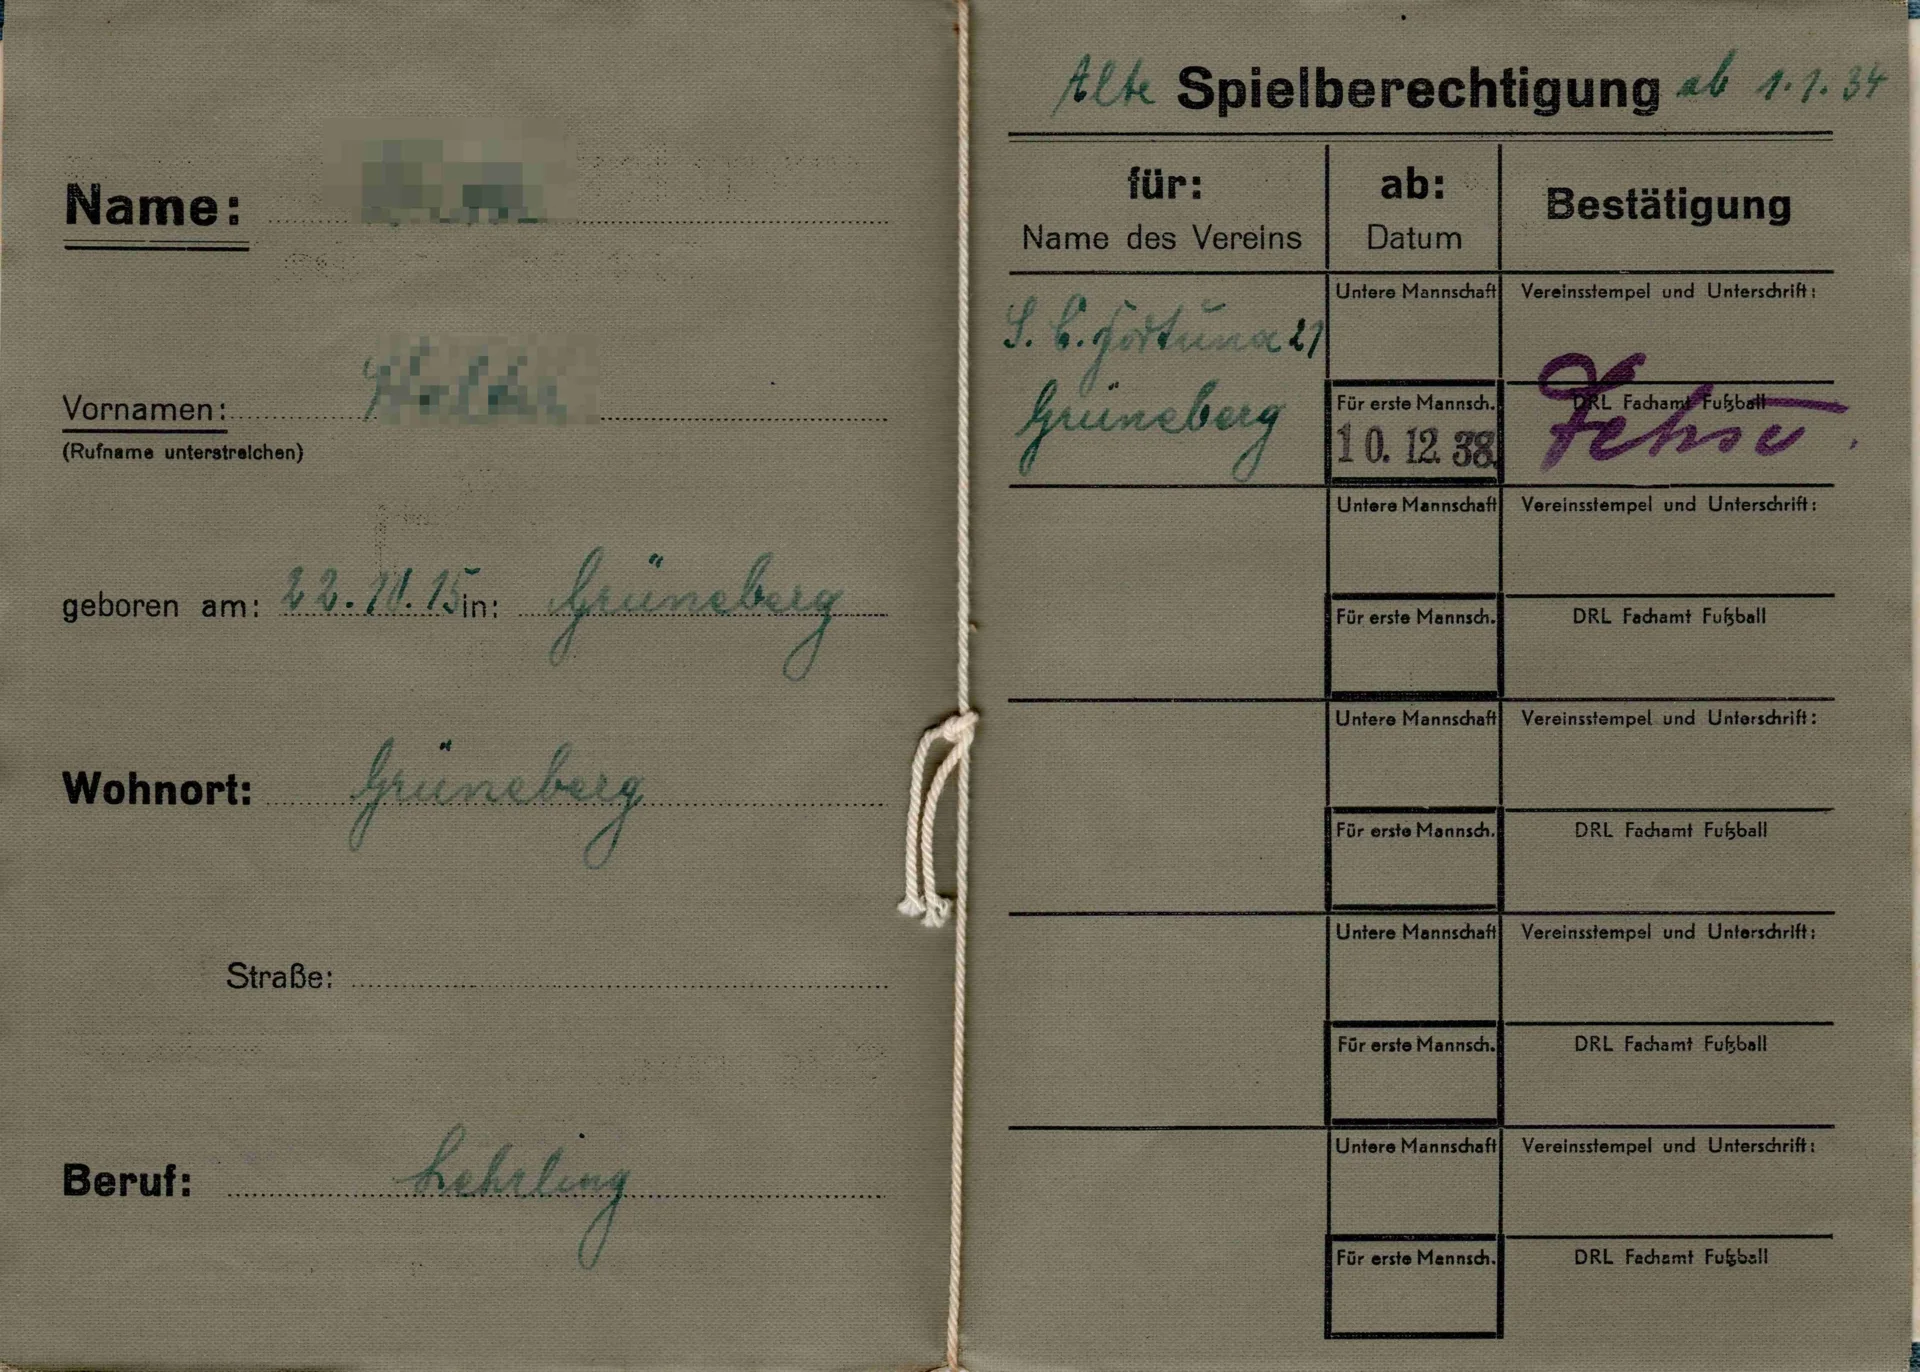 Name:
Vornamen:
(Rufname unterstreichen)
geboren am: 22.10.15 in: Grüneberg
Wohnort: Grüneberg
Straße:
Beruf: Lehrling
Alte Spielberechtigung ab 1.1.34
für:
Name des Vereins
ab:
Datum
Bestätigung
S. C. Fortuna 21
Grüneberg
Untere Mannschaft
Vereinsstempel und Unterschrift:
Für erste Mannsch.
10. 12. 38.
DRL Fachamt Fußball
Untere Mannschaft
Vereinsstempel und Unterschrift:
Für erste Mannsch.
DRL Fachamt Fußball
Untere Mannschaft
Vereinsstempel und Unterschrift:
Für erste Mannsch.
DRL Fachamt Fußball
Untere Mannschaft
Vereinsstempel und Unterschrift:
Für erste Mannsch.
DRL Fachamt Fußball
Untere Mannschaft
Vereinsstempel und Unterschrift:
Für erste Mannsch.
DRL Fachamt Fußball